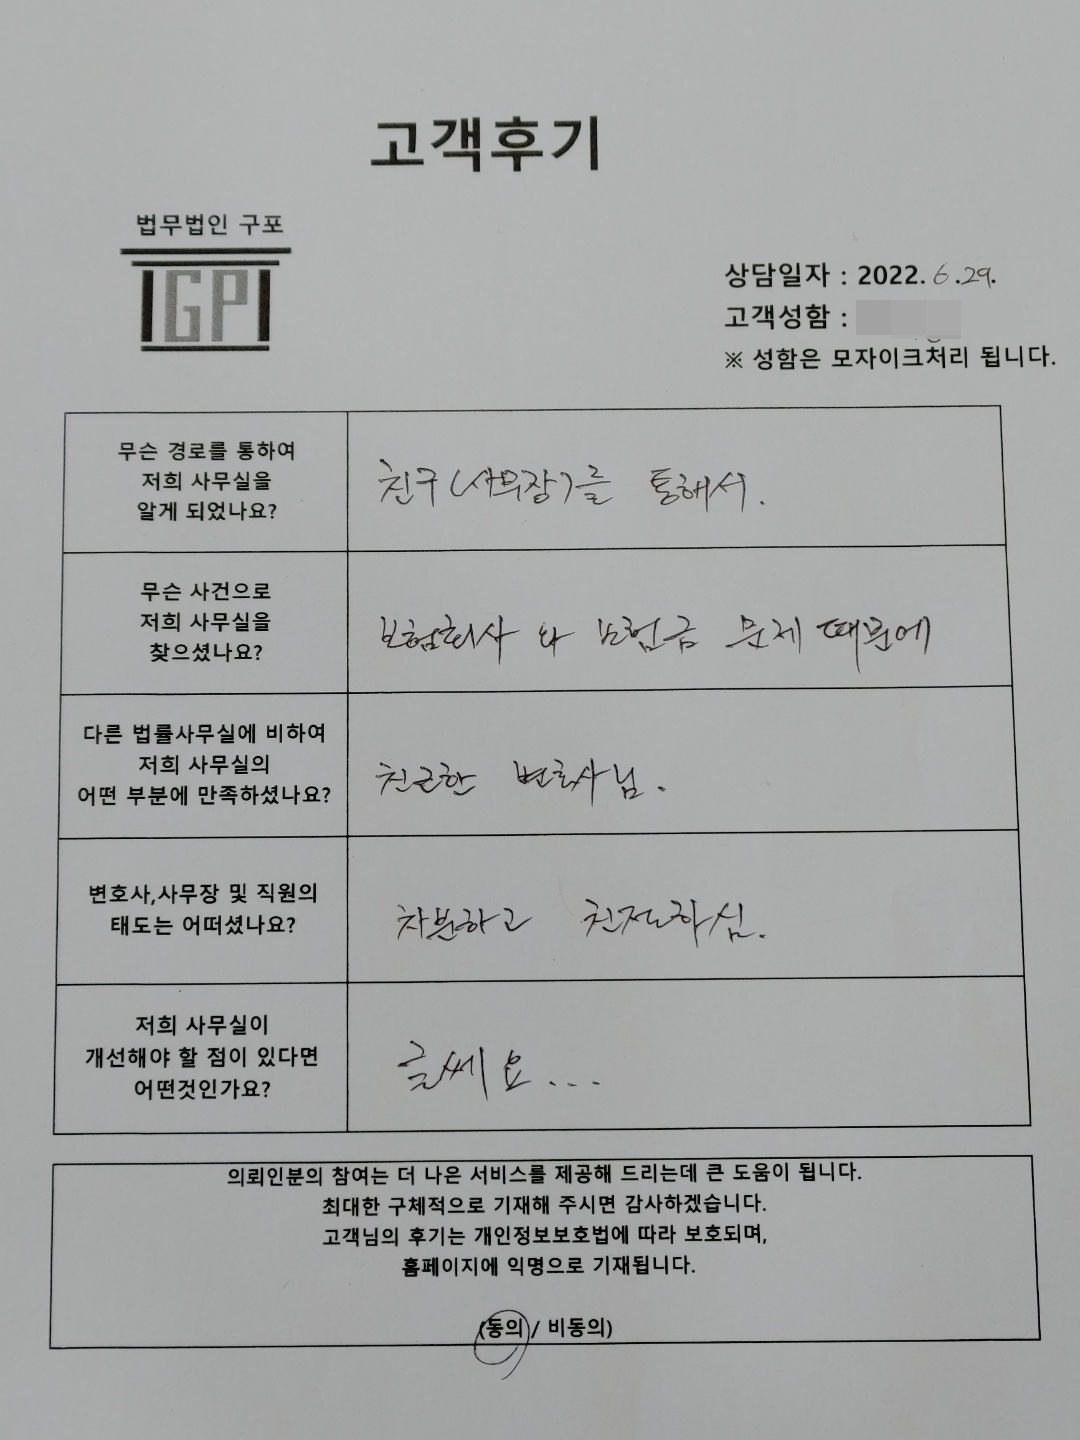 고객후기
법무법인 구포
IGPI
상담일자 : 2022. 6.29.
고객성함 :
※ 성함은 모자이크처리 됩니다.
무슨 경로를 통하여
저희 사무실을
알게 되었나요?
친구(사무장)를 통해서.
무슨 사건으로
저희 사무실을
찾으셨나요?
보험회사 와 보험금 문제 때문에
다른 법률사무실에 비하여
저희 사무실의
어떤 부분에 만족하셨나요?
친근한 변호사님.
변호사,사무장 및 직원의
태도는 어떠셨나요?
차분하고 친절하심.
저희 사무실이
개선해야 할 점이 있다면
어떤것인가요?
글쎄요...
의뢰인분의 참여는 더 나은 서비스를 제공해 드리는데 큰 도움이 됩니다.
최대한 구체적으로 기재해 주시면 감사하겠습니다.
고객님의 후기는 개인정보보호법에 따라 보호되며,
홈페이지에 익명으로 기재됩니다.
(동의 / 비동의)